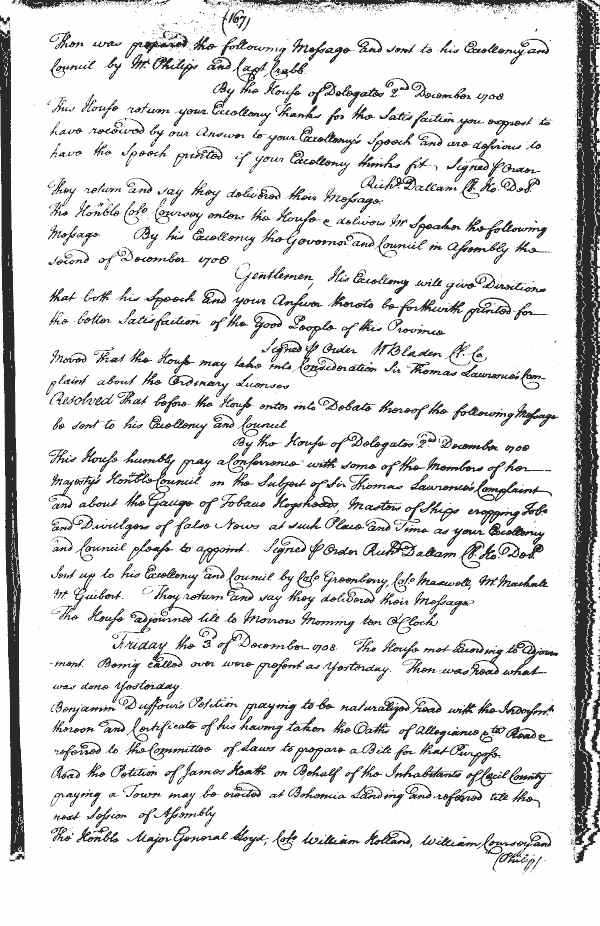 (167)
Then was prepared the following Message and sent to his Excellency and
Council by Mr Philips and Capt Crabb
By the House of Delegates 2nd December 1708
This House return your Excellency Thanks for the Satisfaction you express to
have received by our Answer to your Excellency's Speech and are desirous to
have the Speech printed if your Excellency thinks fit Signed P Order
Richd Dallam Cl. Ho. Del.
They return and say they delivered their Message.
The Honble Colo Coursey enters the House & delivers Mr Speaker the following
Message. By his Excellency the Governor and Council in Assembly the
second of December 1708
Gentlemen, His Excellency will give Directions
that both his Speech and your Answer thereto be forthwith printed for
the better Satisfaction of the Good People of this Province
Signed P Order W Bladen Cl. Co.
Moved That the House may take into Consideration Sir Thomas Lawrence's Com
plaint about the Ordinary Licenses
Resolved That before the House enter into Debate thereof the following Message
be sent to his Excellency and Council
By the House of Delegates 2nd December 1708
This House humbly pray a Conference with some of the Members of her
Majesty's Honble Council on the Subject of Sir Thomas Lawrence's Complaint
and about the Gauge of Tobacco Hogsheads, Masters of Ships cropping Tobo
and Divulgers of false News at such Place and Time as your Excellency
and Council please to appoint. Signed P Order Richd Dallam Cl. Ho. Del.
Sent up to his Excellency and Council by Colo Greenberry, Colo Maxwell, Mr Mackall
Mr Guibert. They return and say they delivered their Message
The House adjourned till to Morrow Morning ten O'Clock
Friday the 3d of December 1708. The House met according to Adjourn
-ment. Being called over were present as Yesterday. Then was read what
was done Yesterday
Benjamin Duffour's Petition praying to be naturalized read with the Indorsmt
thereon and Certificate of his having taken the Oaths of Allegiance &c Read &
referred to the Committee of Laws to prepare a Bill for that Purpose.
Read the Petition of James Heath on Behalf of the Inhabitants of Cecil County
praying a Town may be erected at Bohemia Landing and referred till the
next Session of Assembly
The Honble Major General Lloyd, Colo William Holland, William Coursey and
(Philip)